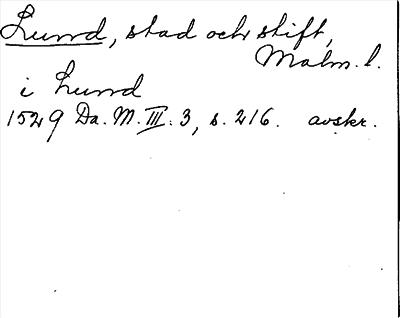 Lund, stad och stift,
Malm. l.
i Lund
1529 Da. M. III. 3, s. 216. avskr.